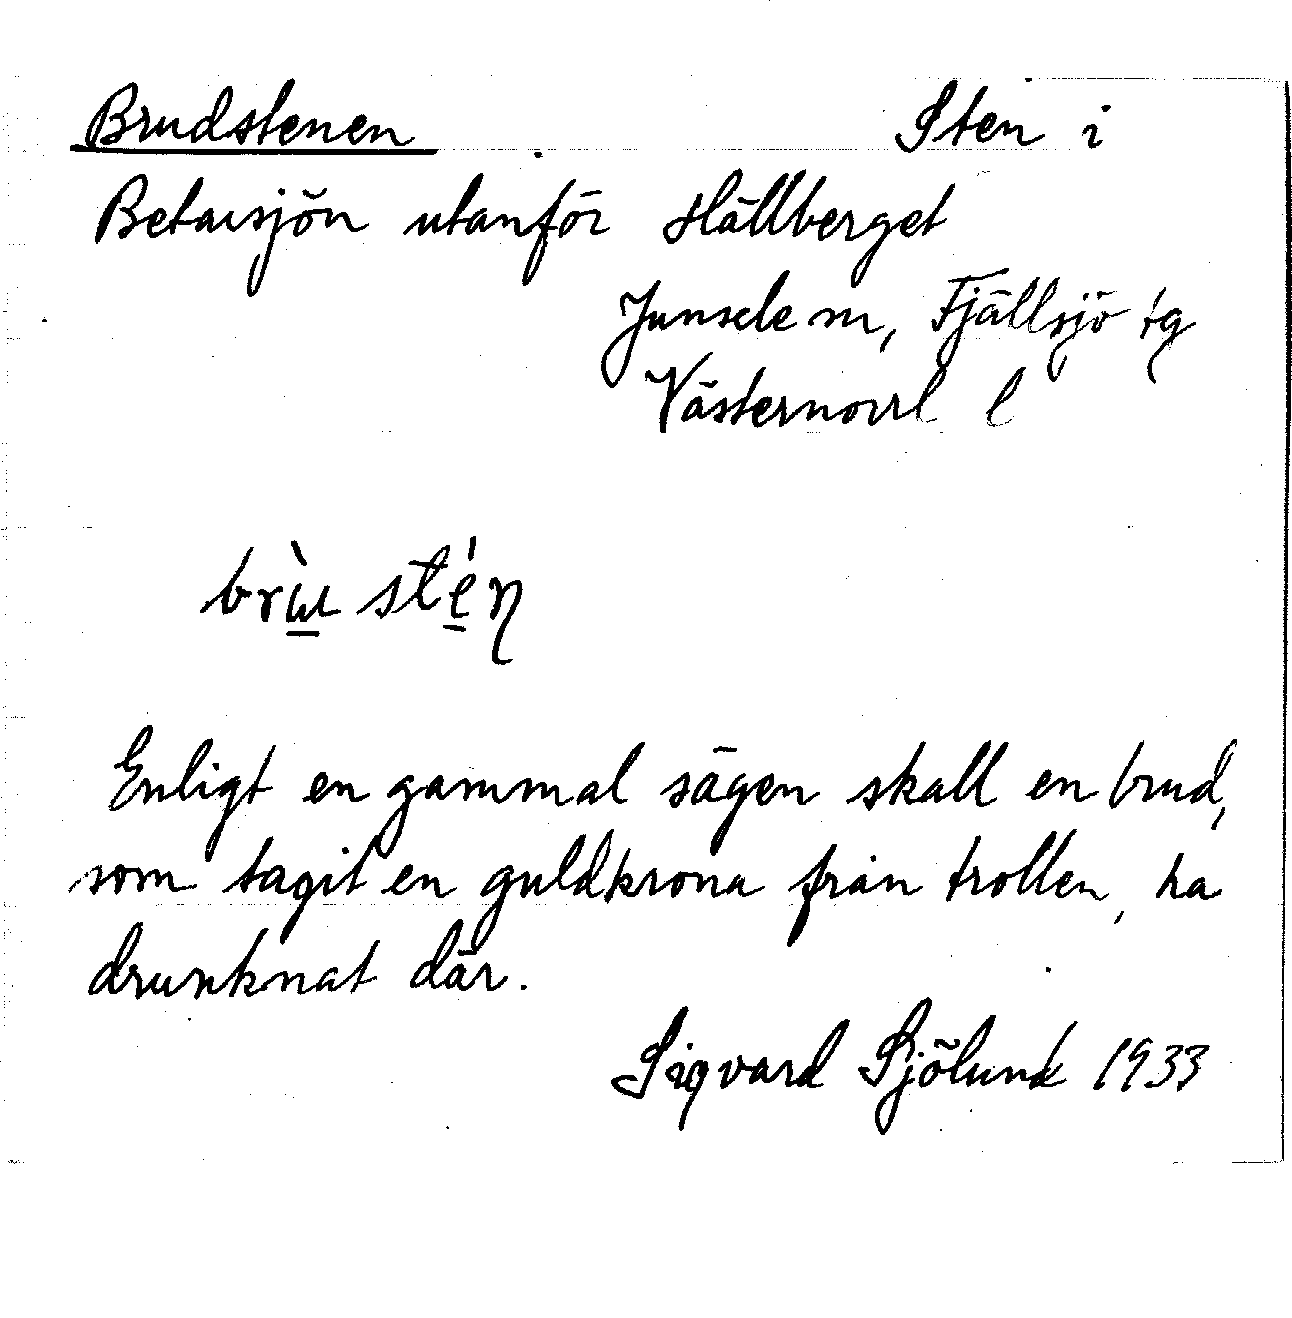 Brudstenen Sten i
Betarsjön utanför Hällberget
Junsele sn, Fjällsjö tg
Västernorrl l
brùu sténˌ
Enligt en gammal sägen skall en brud,
som tagit en guldkrona från trollen, ha
drunknat där.
Sigvard Sjölund 1933